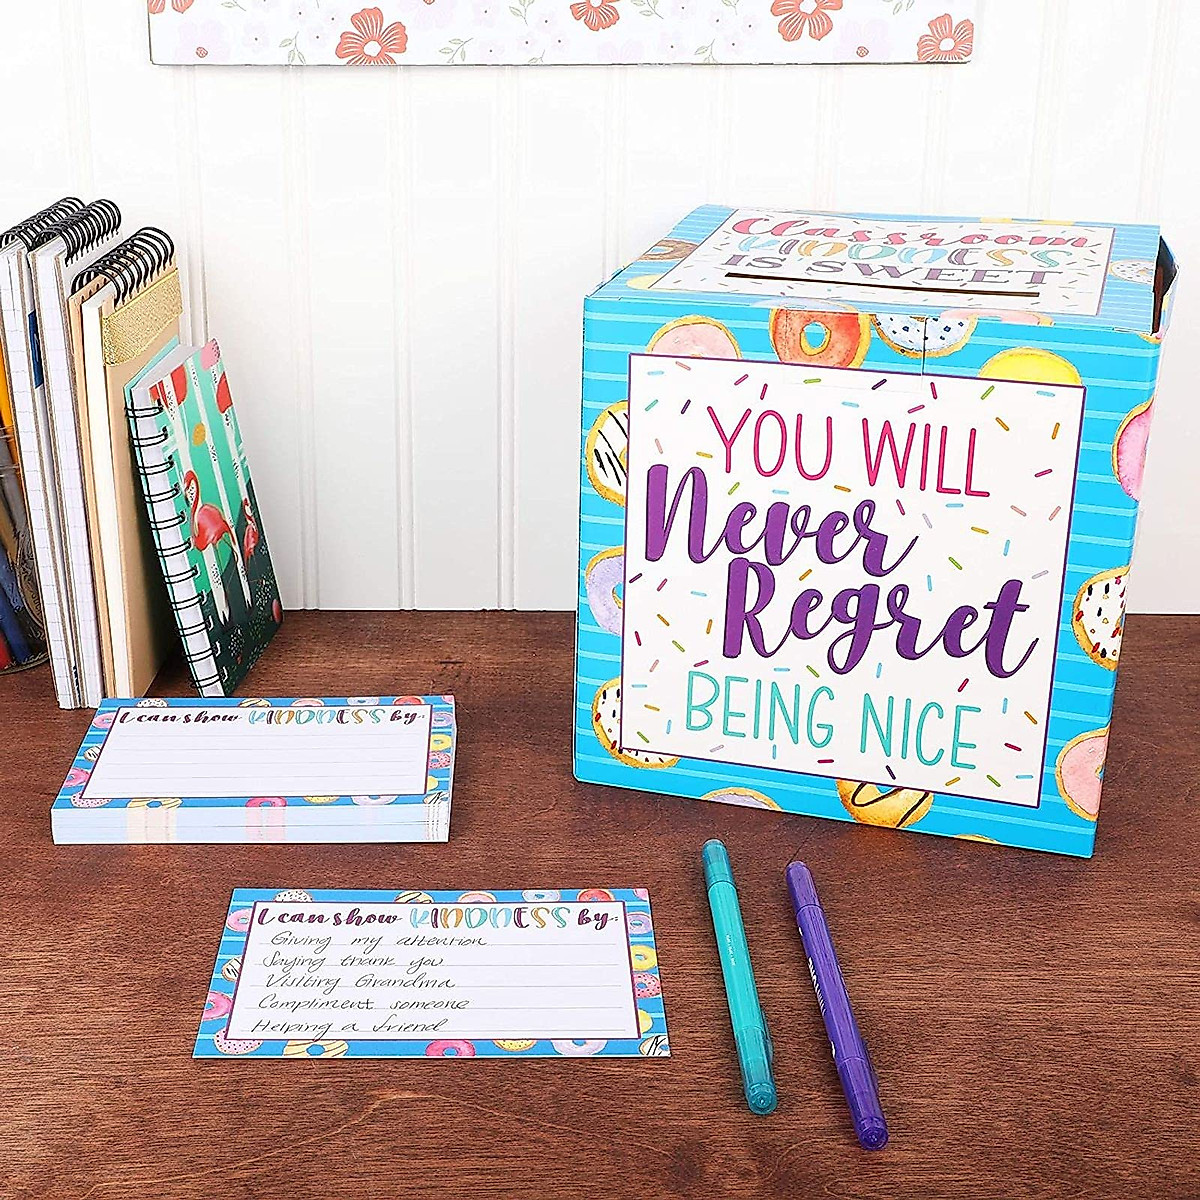 Classroom
KINDNESS
IS SWEET
YOU WILL
Never
Regret
BEING NICE
I can show KINDNESS by:
I can show KINDNESS by:
Giving my attention
Saying thank you
Visiting Grandma
Compliment someone
Helping a friend